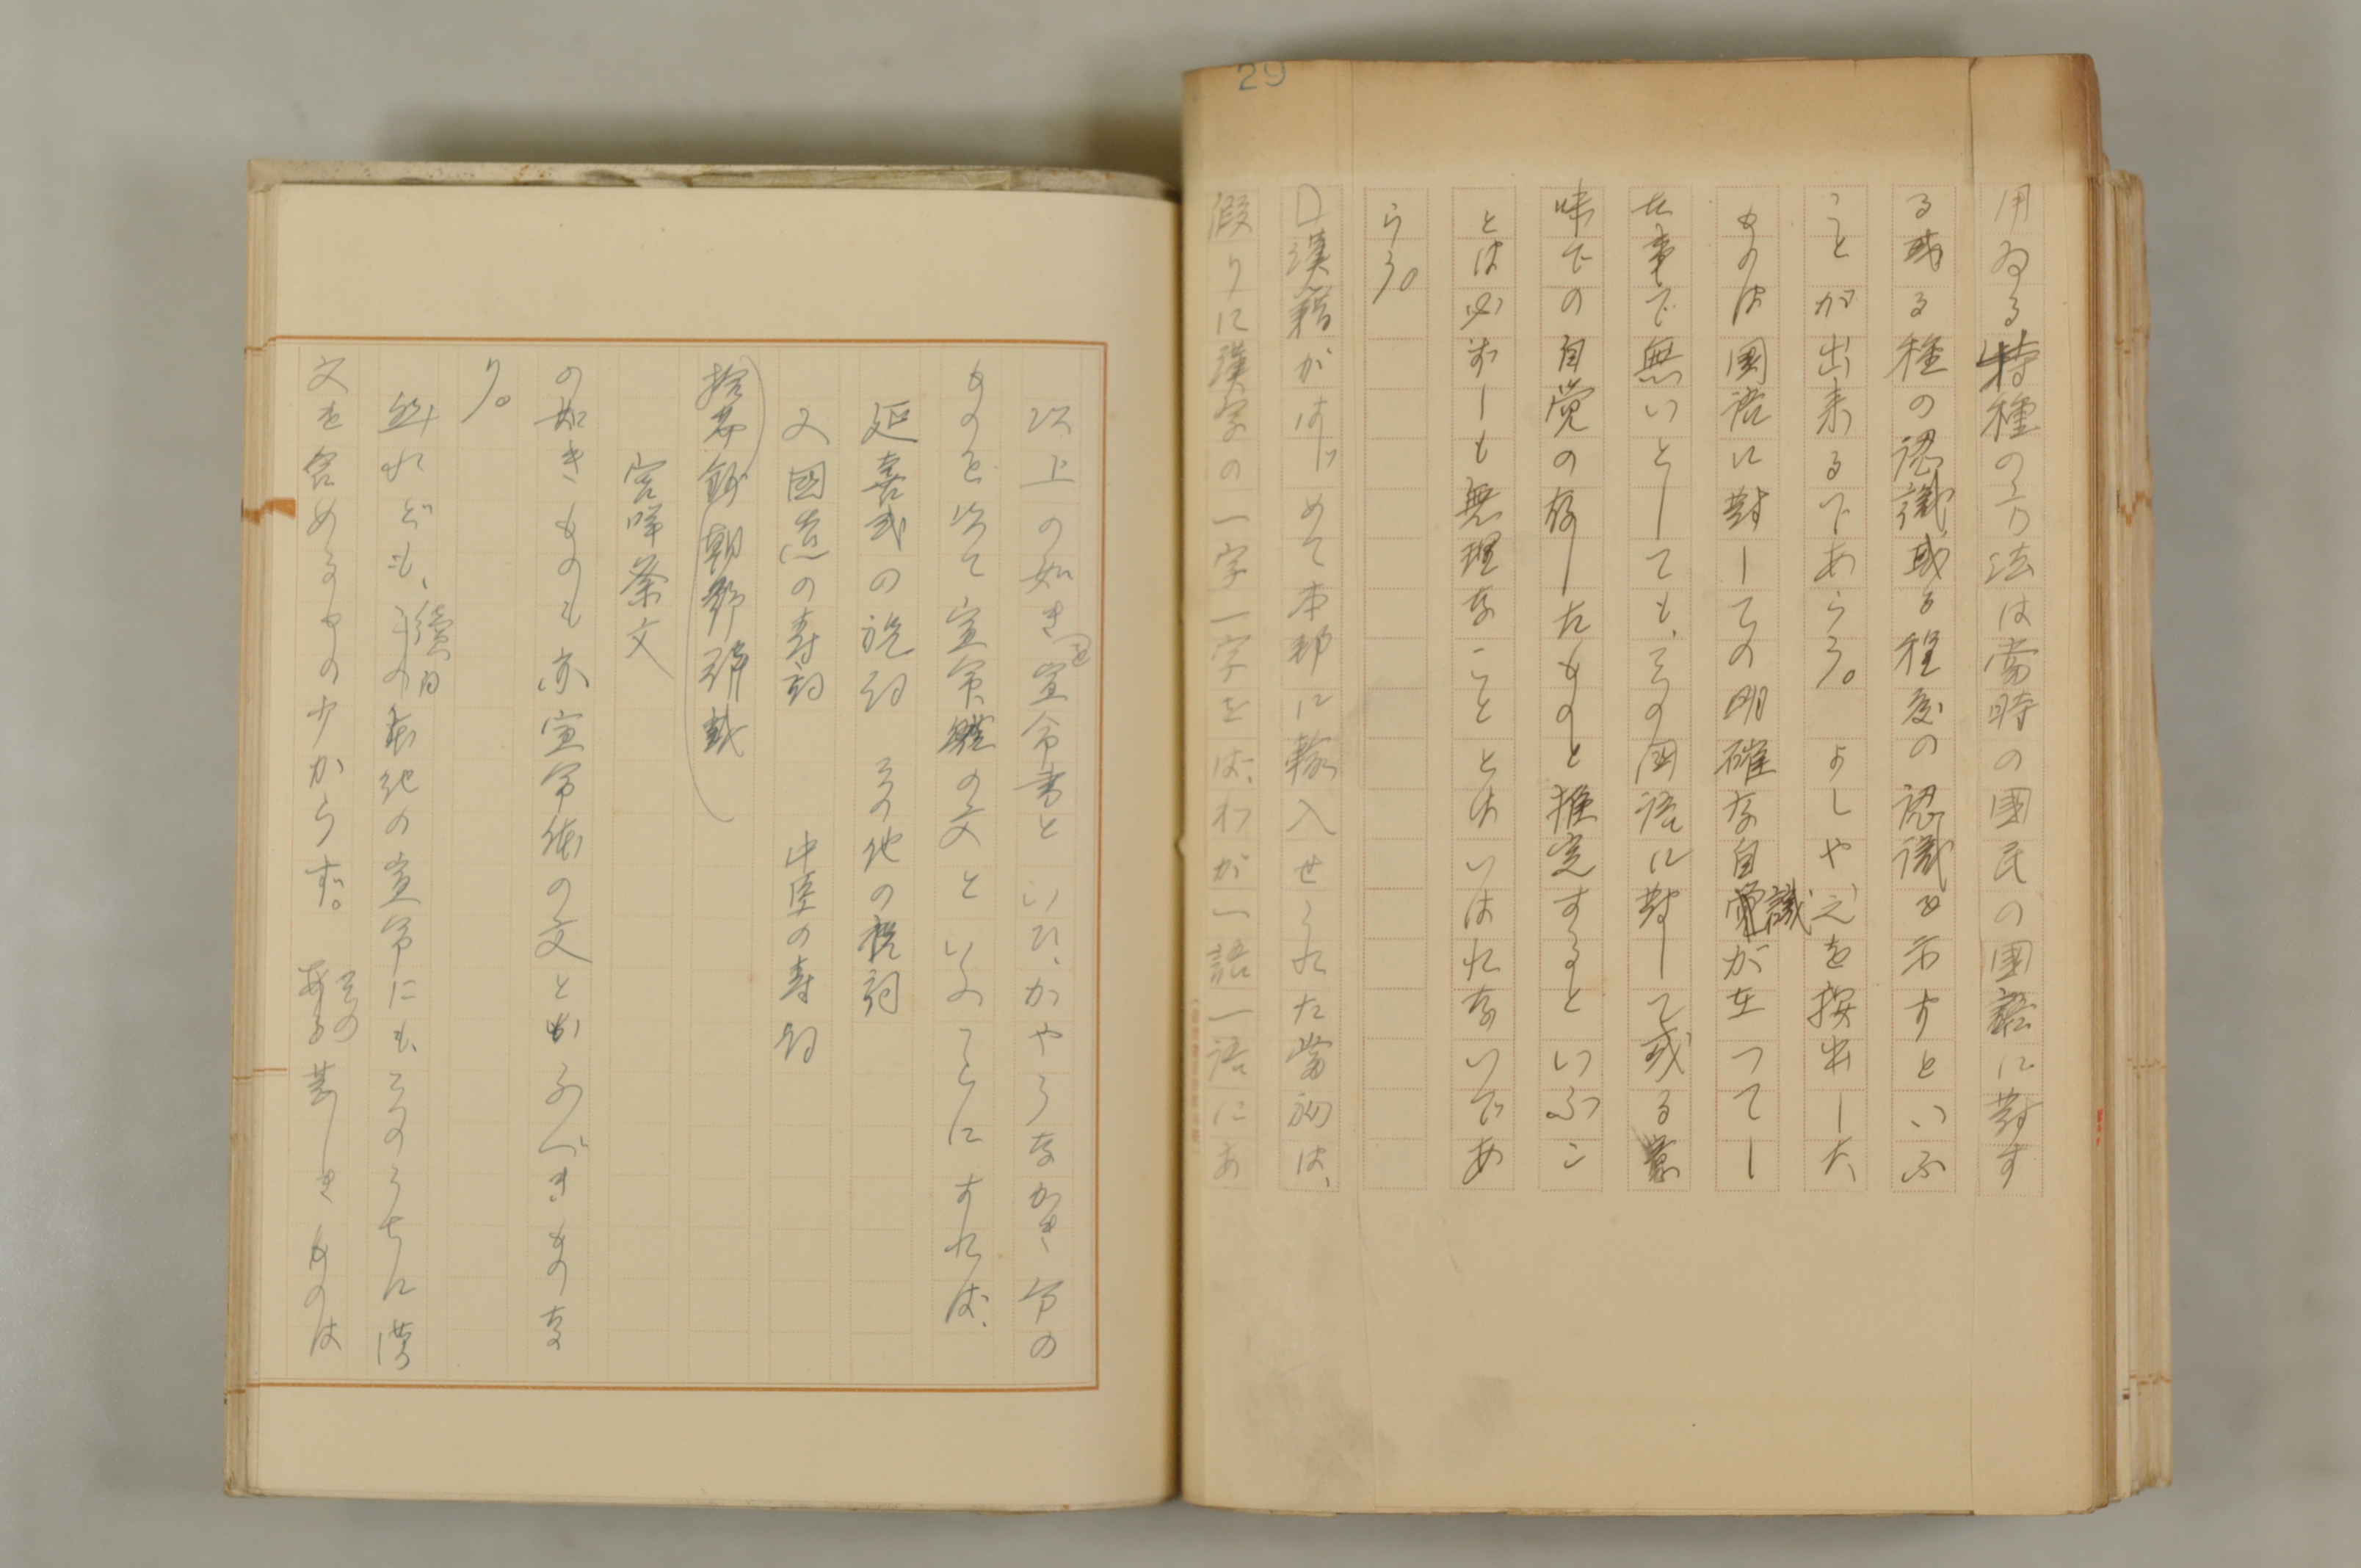 29
用ゐる特種の方法は當時の國民の國語に對す
る或る種の認識、或る程度の認識を示すといふ
ことが出来るであらう。よしや之を撰出した
ものは國語に對しての明確な自覚識が在つてし
た事で無いとしても、その国語に對して或る意
味での自覚の存したものと推定するといふこ
とは必ずしも無理なこととはいはれないであ
らう。
漢籍がはじめて本邦に輸入せられた當初は、
假りに漢字の一字一字をば、わが一語一語にあ
以上の如きを宣命書といひ、かやうなかき命の
ものを以て宣命體の文といふことにすれば、
延喜式の祝詞 その他の祝詞
又国造の壽詞 中臣の壽詞
拾芥鈔 朝野群載
宮咩祭文
の如きものも亦宣命体の文といふべきものな
り。
然れども、續日本紀の宣命にも、そのうちに漢
文を含めるもの少からず。その甚しきものは